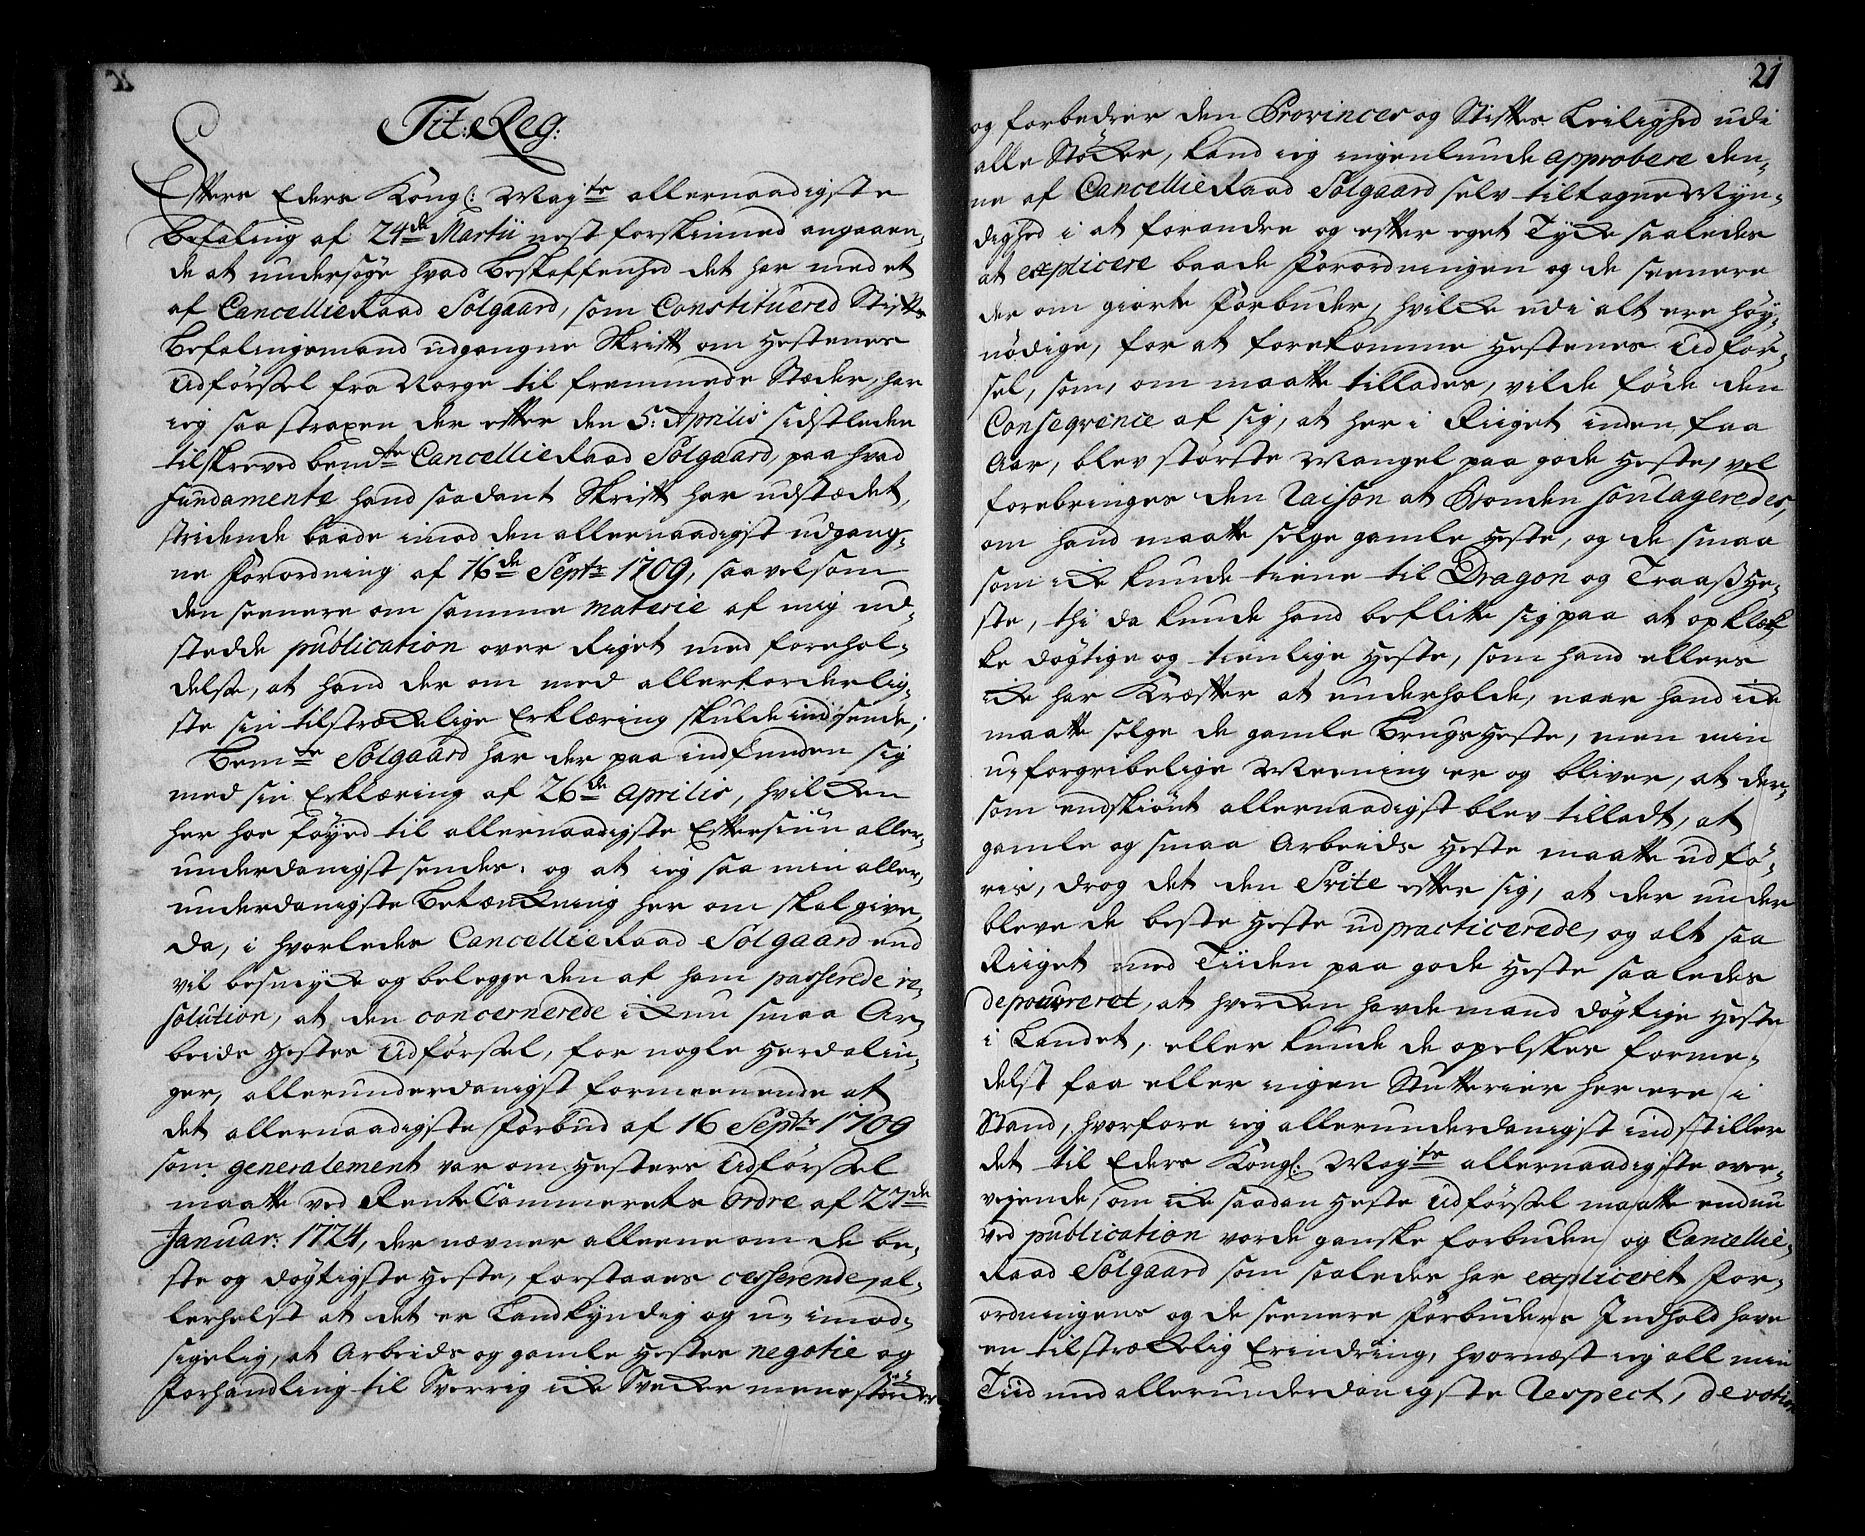 Tit: Reg:
Efftere Eders Kongl: Maj:te allernaadigste
Befaling af 24de Martii nest forskinned angaaen-
de at undersøge hvad Beskaffenhed det har med et
af CancellieRaad Solgaard, som Constituered Stifts
Befalingsmand udgangne Skrifft om Hestenes
Udførssel fra Norge til fremmede Stæder, har
ieg saa strapen der effter den 5: Aprilis sidstleden
tilskreved bem:te CancellieRaad Solgaard, paa hvad
fundamente hand saadant Skrifft har udstædet,
stridende baade imod den allernaadigst udgang-
ne Forordning af 16de Septr 1709, saavelsom
den seenere om samme materie af mig ud-
stedde publication over Riget med forehol-
delse, at hand der om med allerforderlig-
ste sin tilstræckelige Erklæring skulde indsende,
Bem:te Solgaard har der paa indfunden sig
med sin Erklæring af 26de Aprilis, hvilcken
her hos føyed til allernaadigste Efftersiun aller-
underdanigst sendes, og at ieg saa min aller-
underdanigste Betænckning her om skal give,
da, i hvorledes CancellieRaad Solgaard end
vil besmycke og belegge den af ham passerede re-
solution, at den concernerede ickun smaa Ar-
beids Hestes Udførssel, for nogle Herdalin-
ger, allerunderdanigst formeenende at
det allernaadigste Forbud af 16 Septr 1709
som generalement var om Hesters Udførssel
maatte ved RenteCammerets Ordre af 27de
Januar: 1724, der nævner alleene om de be-
ste og dygtigste Heste, forstaaes cesserende, al-
lerhelst at det er Landkyndig og u-imod-
sigelig, at Arbeids og gamle Hestes negotie og
Forhandling til Sverrig icke Svecker mens
21
og forbedrer den Provinces og Stifftes Leilighed udi
alle Stöcker, kand ieg ingenlunde approbere den-
ne af CancellieRaad Solgaard selv tiltagne Myn-
dighed i at forandre og effter eget Tycke saaledes
at explicere baade Forordningen og de seenere
der om giorte Forbuder, hvilcke udi alt ere høy-
nødige, for at forekomme Hestenes Udfør-
sel, som, om maatte tillades, vilde føde den
Conseqvence af sig, at her i Riiget inden faa
Aar, blev største Mangel paa gode Heste, vel
forebringes den Raison at Bonden soulageredes,
om hand maatte selge gamle Heste, og de smaa
som icke kunde tiene til Dragon og Traass He-
ste, thi da kunde hand beflitte sig paa at opklæk
ke dygtige og tienlige Heste, som hand ellers
icke har Kræffter at underholde, naar hand icke
maatte selge de gamle BrugsHeste, men min
u-forgribelige Meening er og bliver, at der-
som endskiönt allernaadigst blev tilladt, at
gamle og smaa Arbeids Heste maatte udfö-
ris, drog det den Svite effter sig, at der under
bleve de beste Heste udpracticerede, og alt saa
Riiget med Tiiden paa gode Heste saaledes
depouvreret, at hvercken havde mand dygtige Heste
i Landet, eller kunde de opelskes forme-
delst faa eller ingen Stutterier her ere i
Stand, hvorfore ieg allerunderdanigst indstiller
det til Eders Kongl: Maj:te allernaadigste over-
vejende, om icke saadan Heste Udførssel maatte endnu
ved publication vorde ganske forbuden og Cancellie-
Raad Solgaard som saaledes har expliceret For-
ordningens og de seenere Forbuders Indhold have
en tilstræckelig Erindring, hvornæst ieg all min
Tiid med allerunderdanigste Respect, devotion